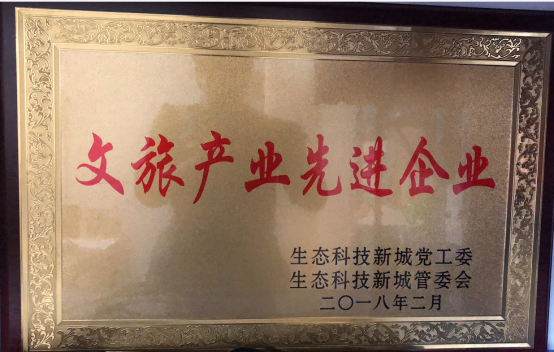 文旅产业先进企业
生态科技新城党工委
生态科技新城管委会
二〇一八年二月